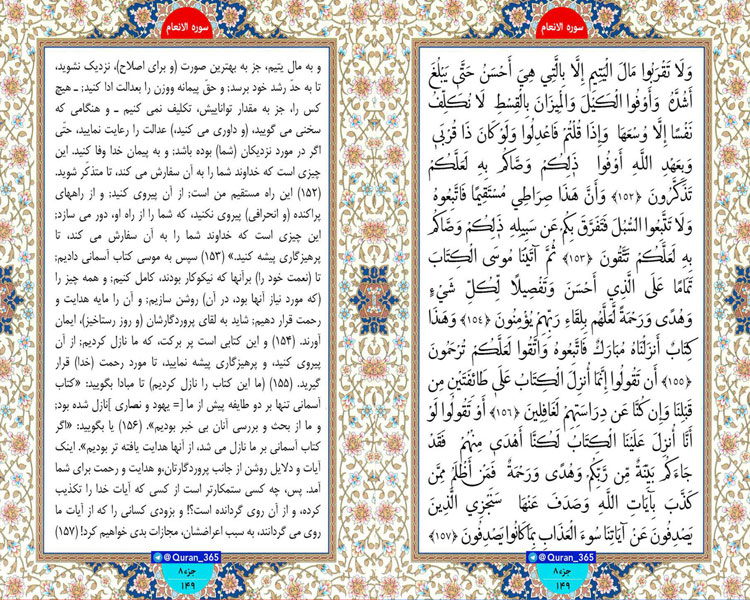 سوره الانعام
وَلَا تَقْرَبُوا مَالَ الْيَتِيمِ إِلَّا بِالَّتِي هِيَ أَحْسَنُ حَتَّىٰ يَبْلُغَ
أَشُدَّهُ وَأَوْفُوا الْكَيْلَ وَالْمِيزَانَ بِالْقِسْطِ لَا نُكَلِّفُ
نَفْسًا إِلَّا وُسْعَهَا وَإِذَا قُلْتُمْ فَاعْدِلُوا وَلَوْ كَانَ ذَا قُرْبَىٰ
وَبِعَهْدِ اللَّهِ أَوْفُوا ذَٰلِكُمْ وَصَّاكُم بِهِ لَعَلَّكُمْ
تَذَكَّرُونَ ﴿١٥٢﴾ وَأَنَّ هَٰذَا صِرَاطِي مُسْتَقِيمًا فَاتَّبِعُوهُ
وَلَا تَتَّبِعُوا السُّبُلَ فَتَفَرَّقَ بِكُمْ عَن سَبِيلِهِ ذَٰلِكُمْ وَصَّاكُم
بِهِ لَعَلَّكُمْ تَتَّقُونَ ﴿١٥٣﴾ ثُمَّ آتَيْنَا مُوسَى الْكِتَابَ
تَمَامًا عَلَى الَّذِي أَحْسَنَ وَتَفْصِيلًا لِّكُلِّ شَيْءٍ
وَهُدًى وَرَحْمَةً لَّعَلَّهُم بِلِقَاءِ رَبِّهِمْ يُؤْمِنُونَ ﴿١٥٤﴾ وَهَٰذَا
كِتَابٌ أَنزَلْنَاهُ مُبَارَكٌ فَاتَّبِعُوهُ وَاتَّقُوا لَعَلَّكُمْ تُرْحَمُونَ
﴿١٥٥﴾ أَن تَقُولُوا إِنَّمَا أُنزِلَ الْكِتَابُ عَلَىٰ طَائِفَتَيْنِ مِن
قَبْلِنَا وَإِن كُنَّا عَن دِرَاسَتِهِمْ لَغَافِلِينَ ﴿١٥٦﴾ أَوْ تَقُولُوا لَوْ
أَنَّا أُنزِلَ عَلَيْنَا الْكِتَابُ لَكُنَّا أَهْدَىٰ مِنْهُمْ فَقَدْ
جَاءَكُم بَيِّنَةٌ مِّن رَّبِّكُمْ وَهُدًى وَرَحْمَةٌ فَمَنْ أَظْلَمُ مِمَّن
كَذَّبَ بِآيَاتِ اللَّهِ وَصَدَفَ عَنْهَا سَنَجْزِي الَّذِينَ
يَصْدِفُونَ عَنْ آيَاتِنَا سُوءَ الْعَذَابِ بِمَا كَانُوا يَصْدِفُونَ ﴿١٥٧﴾
@Quran_365
جزء ۸
۱۴۹
سوره الانعام
و به مال یتیم، جز به بهترین صورت (و برای اصلاح)، نزدیک نشوید،
تا به حدّ رشد خود برسد؛ و حقّ پیمانه ووزن را بعدالت ادا کنید؛ ـ هیچ
کس را، جز به مقدار تواناییش، تکلیف نمی کنیم ـ و هنگامی که
سخنی می گویید، (و داوری می کنید،) عدالت را رعایت نمایید، حتّی
اگر در مورد نزدیکان (شما) بوده باشد؛ و به پیمان خدا وفا کنید. این
چیزی است که خداوند شما را به آن سفارش می کند، تا متذکّر شوید.
(۱۵۲) این راه مستقیم من است؛ از آن پیروی کنید; و از راههای
پراکنده (و انحرافی) پیروی نکنید، که شما را از راه او، دور می سازد;
این چیزی است که خداوند شما را به آن سفارش می کند، تا
پرهیزگاری پیشه کنید.» (۱۵۳) سپس به موسی کتاب آسمانی دادیم;
تا (نعمت خود را) برآنها که نیکوکار بودند، کامل کنیم; و همه چیز را
(که مورد نیاز آنها بود، در آن) روشن سازیم; و آن را مایه هدایت و
رحمت قرار دهیم; شاید به لقای پروردگارشان (و روز رستاخیز)، ایمان
آورند. (۱۵۴) و این کتابی است پر برکت، که ما نازل کردیم; از آن
پیروی کنید، و پرهیزگاری پیشه نمایید، تا مورد رحمت (خدا) قرار
گیرید. (۱۵۵) (ما این کتاب را نازل کردیم) تا مبادا بگویید: «کتاب
آسمانی تنها بر دو طایفه پیش از ما [= یهود و نصاری ]نازل شده بود;
و ما از بحث و بررسی آنان بی خبر بودیم». (۱۵۶) یا بگویید: «اگر
کتاب آسمانی بر ما نازل می شد، از آنها هدایت یافته تر بودیم». اینک
آیات و دلایل روشن از جانب پروردگارتان،و هدایت و رحمت برای شما
آمد. پس، چه کسی ستمکارتر است از کسی که آیات خدا را تکذیب
کرده، و از آن روی گردانده است؟! و بزودی کسانی را که از آیات ما
روی می گردانند، به سبب اعراضشان، مجازات بدی خواهیم کرد! (۱۵۷)
@Quran_365
جزء ۸
۱۴۹